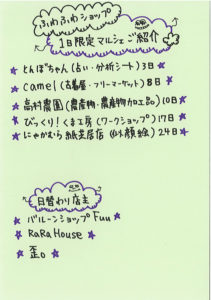 ふわふわショップ
1日限定マルシェご紹介
とんぼちゃん(占い・分析シート)3日
camel(古着屋・フリーマーケット)8日
高村農園(農産物・農産物加工品)10日
びっくり!くまこ房(ワークショップ)17日
にゃかむら紙芝居店(似顔絵)24日
日替わり店主
バルーンショップFuu
RaRaHouse
歪。